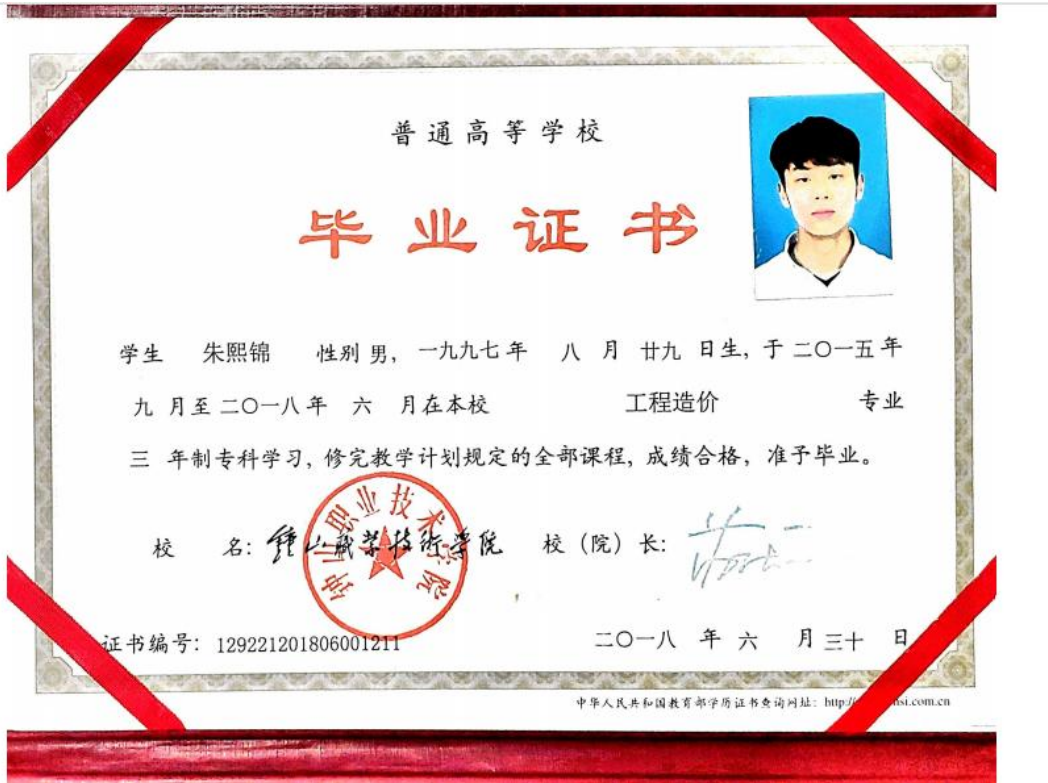 普通高等学校
毕业证书
学生 朱熙锦 性别 男, 一九九七 年 八 月 廿九 日生, 于 二〇一五 年
九 月至 二〇一八 年 六 月在本校 工程造价 专业
三 年制专科学习, 修完教学计划规定的全部课程, 成绩合格, 准予毕业。
校 名: 鍾山職業技術學院 校（院）长:
钟山职业技术学院
证书编号: 129221201806001211 二〇一八 年 六 月 三十 日
中华人民共和国教育部学历证书查询网址: http:// si.com.cn